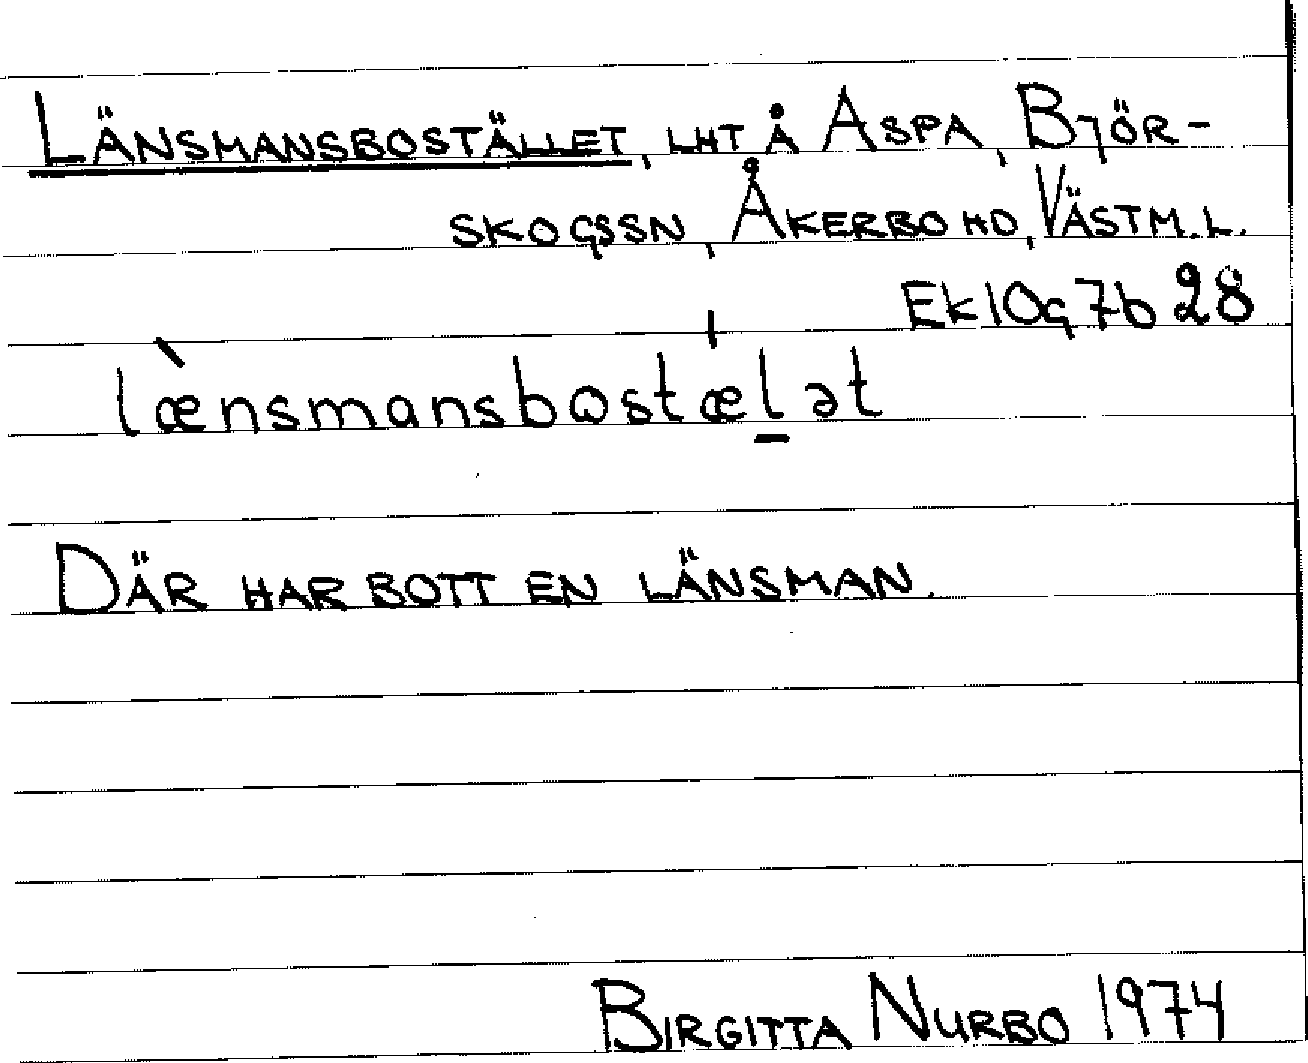 LÄNSMANSBOSTÄLLET, LHT Å ASPA, BJÖR-
SKOGSSN, ÅKERBO HD, VÄSTM. L.
EK 10g 7b 28
lænsmansbostælət
DÄR HAR BOTT EN LÄNSMAN.
BIRGITTA NURBO 1974